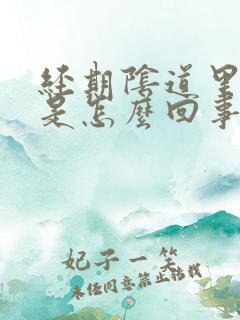 經期陰道里
是怎麼回事
妃子一笑
未经同意禁止转载